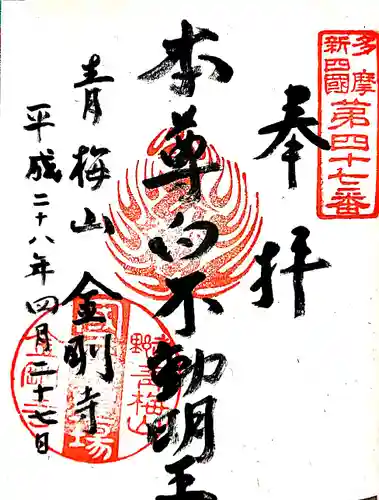 多摩
新四國
第四十七番
奉拝
本尊白不動明王
青梅山 金剛寺
平成二十八年四月二十七日